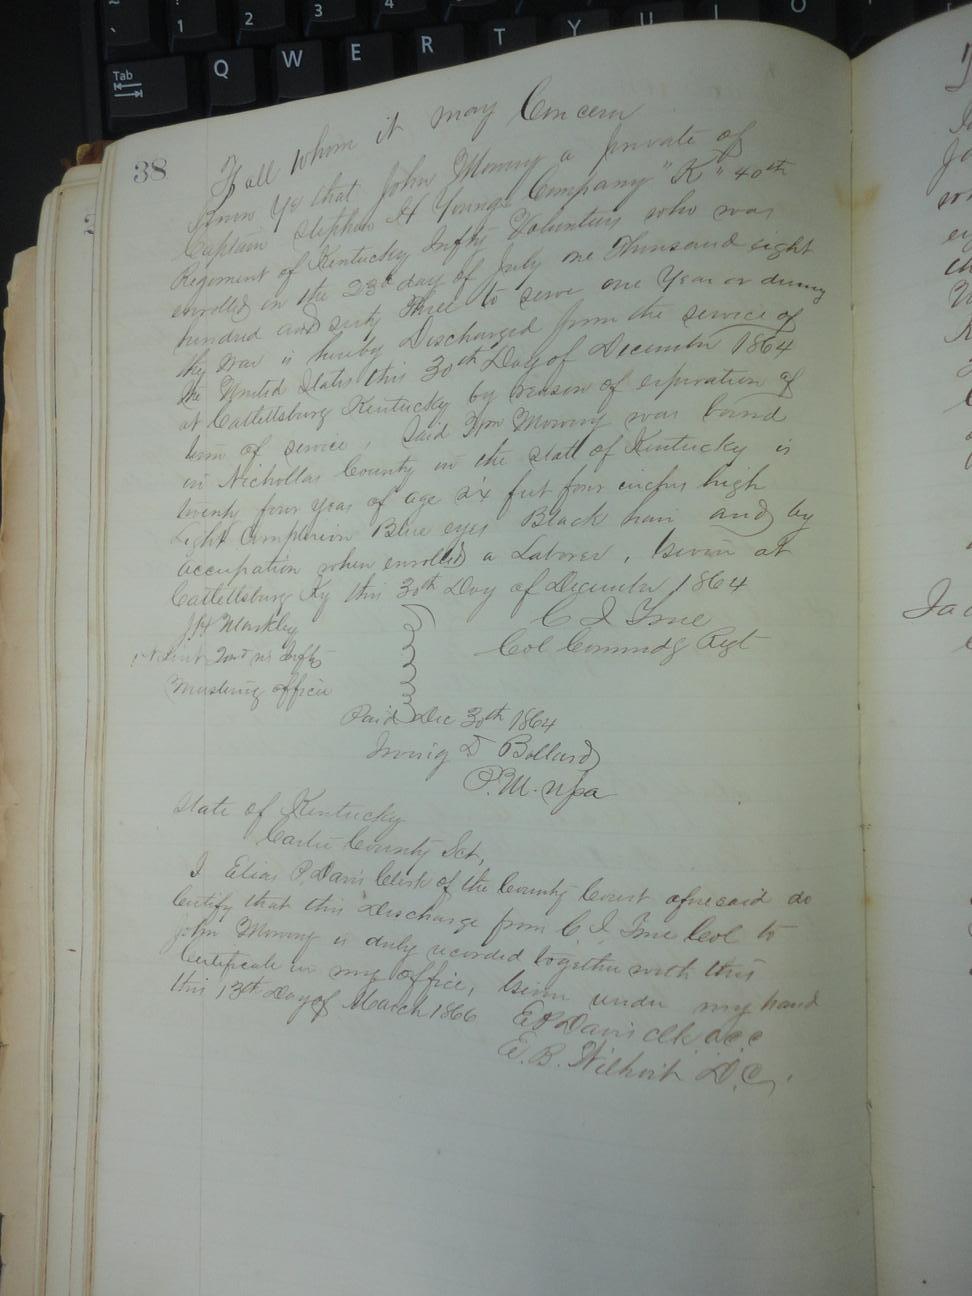 ~ ` ! 1 2 3 4 O
Tab Q W E R T Y U I O
38
To all whom it may Concern
Know Ye that John Mowry a private of
Captain Stephen H Youngs Company "K" 40th
Regement of Kentucky Infty Volunteers who was
enrolled in the 23d day of July one Thousand eight
hundred and sixty Three to serve one Year or during
the war is hereby Discharged from the service of
the United States this 30th Day of December 1864
at Catlettsburg Kentucky by reason of expiration of
term of service, Said Jno Mowry was band
in Nichollas County in the state of Kentucky is
twenty four years of age six feet four inches high
Light Complexion Blue eyes Black hair and by
occupation when enrolled a Laborer, Given at
Catlettsburg Ky this 30th Day of December 1864
J H Markley C J True
Col Commdg Regt
Mustring officer
Paid Dec 30th 1864
Irvuig D Bollard
P.M. usa
State of Kentucky
Carter County Sct,
I Elias P. Davis Clerk of the County Court aforesaid do
Certify that this Discharge from C J. True Col to
John Mowry is duly recorded together with this
Certificate in my office, Given under my hand
this 13th Day of March 1866
E P Davis clk ccc
E. B. Wilhoit D.C.
Ja